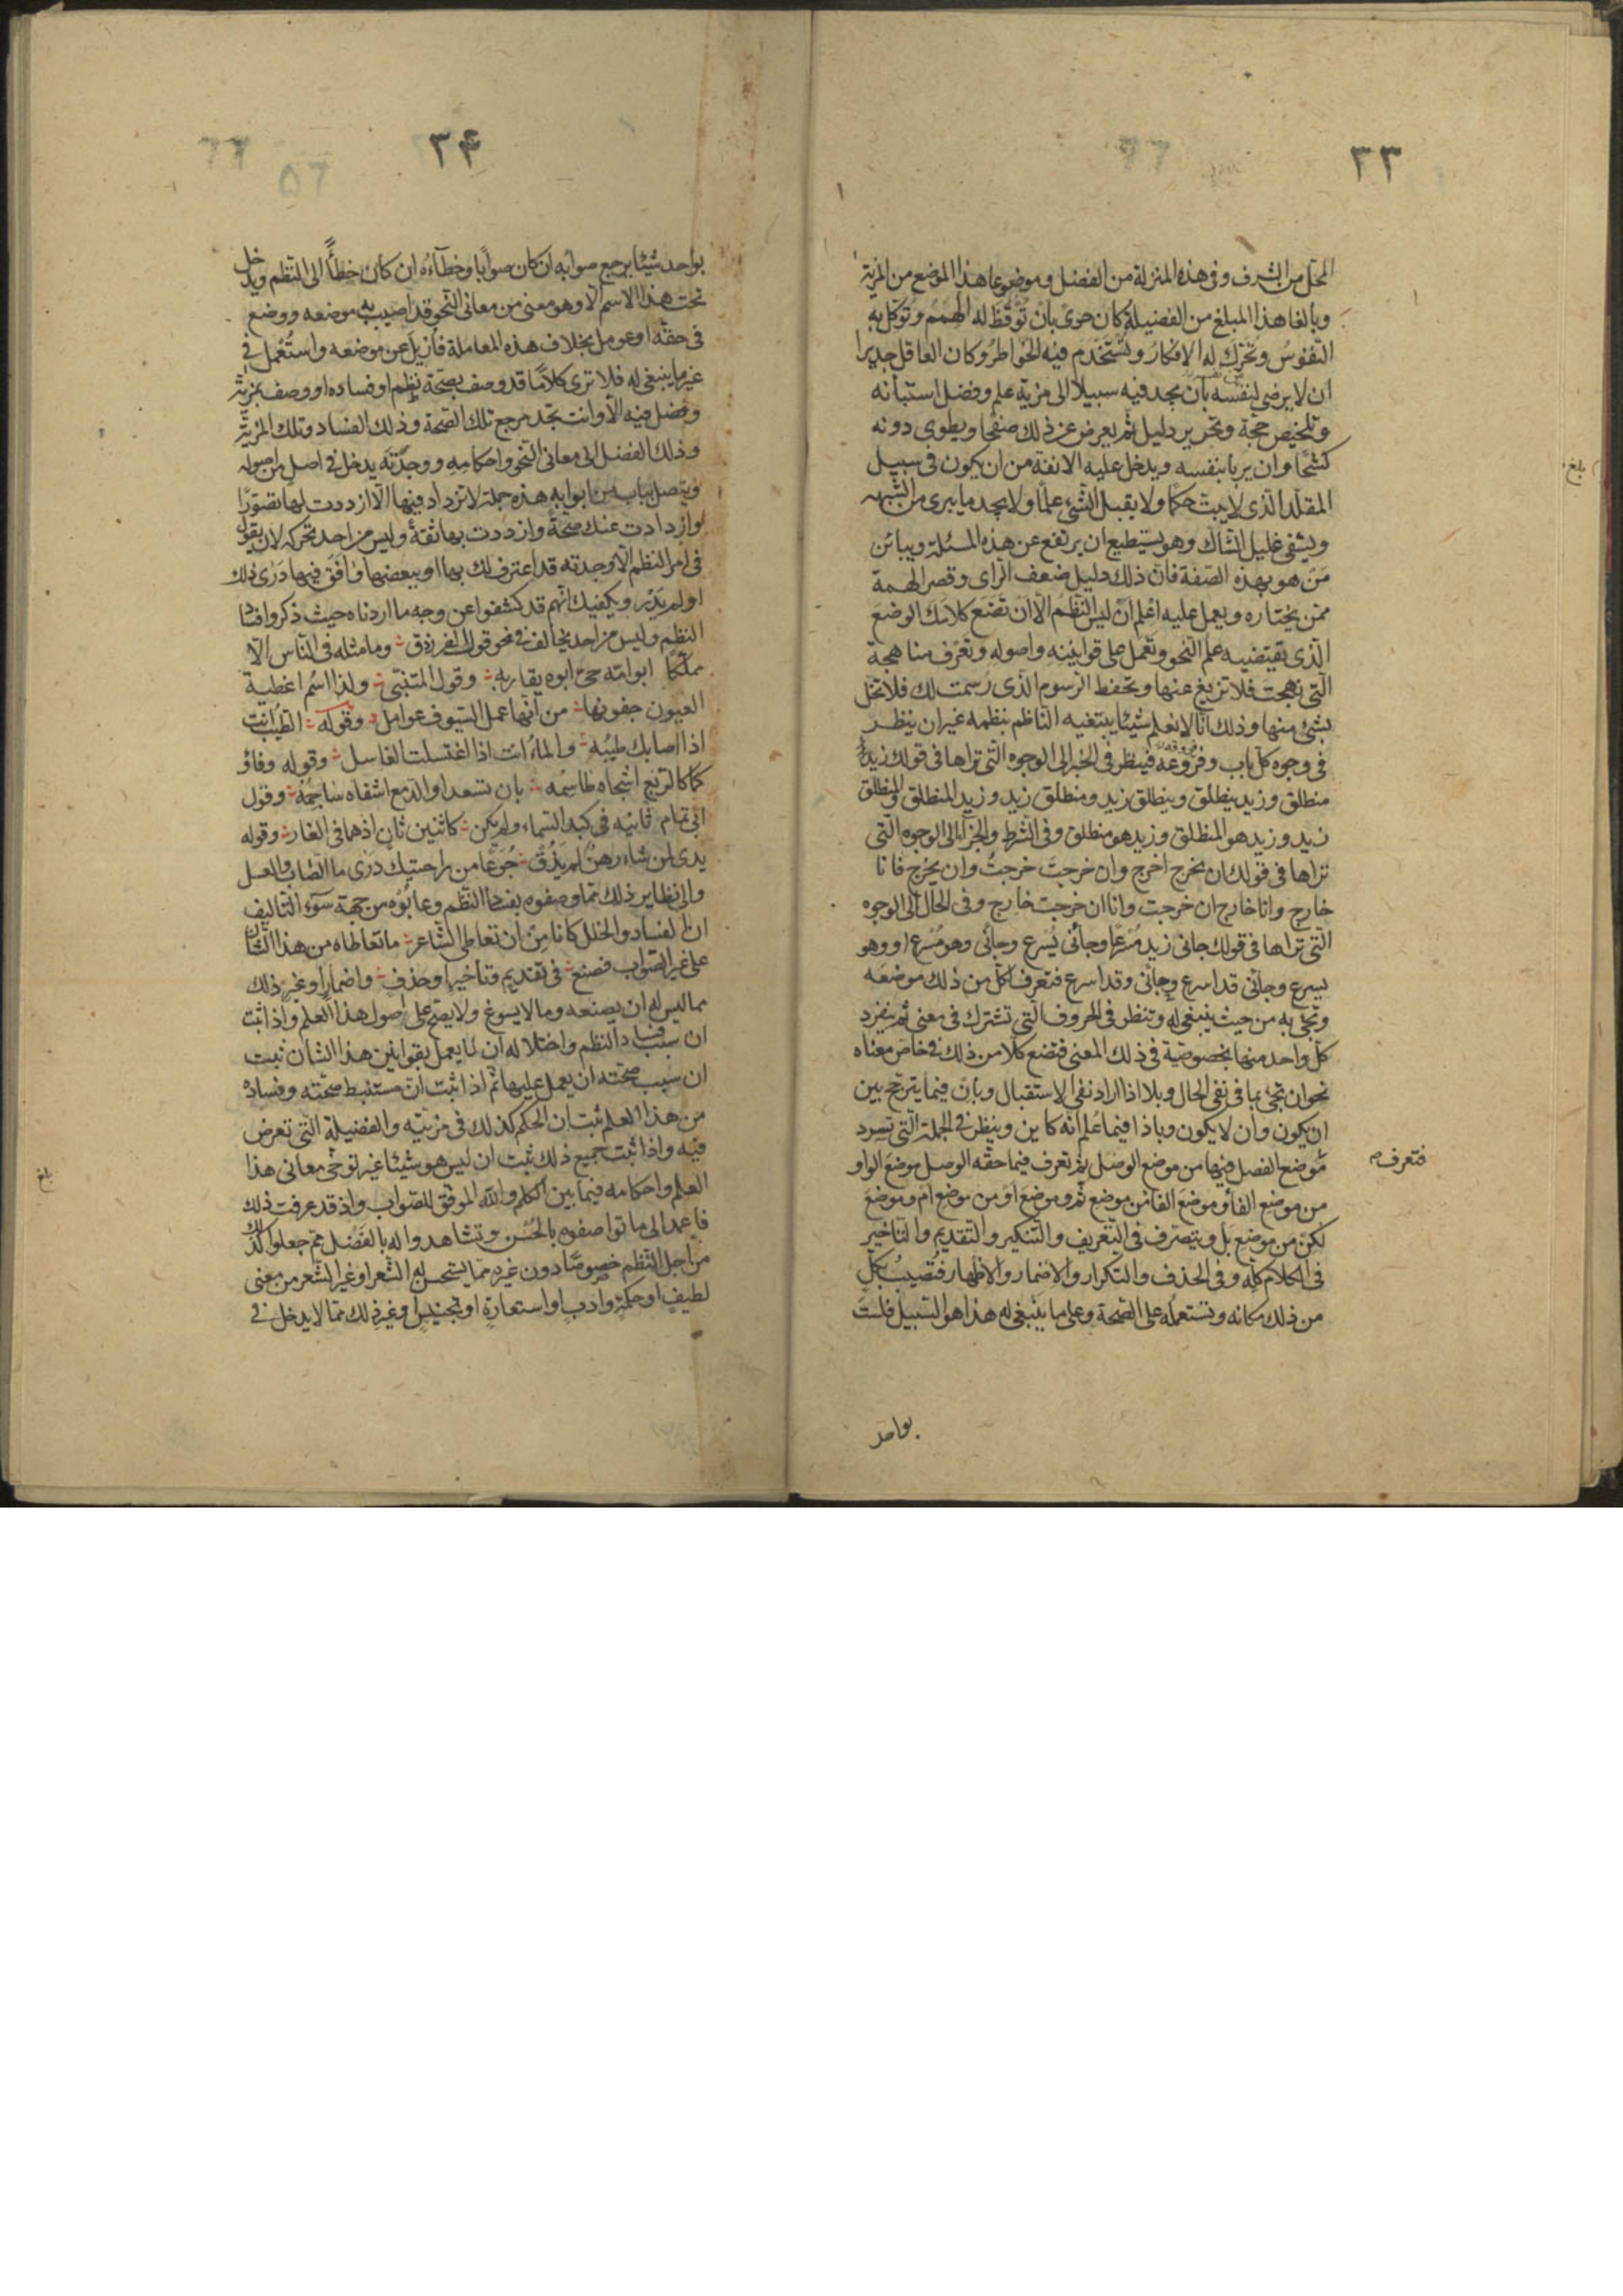 ٣٣
المحل من الشرف وفى هذه المنزلة من الفضل وموضوعا هذا الموضع من المزية
وبالغا هذا المبلغ من الفضيلة كان حرى بان توقظ له الهمم وتوكل به
النفوس وتحرك له الافكار وتستخدم فيه الخواطر وكان العاقل جديرا
ان لا يرضى لنفسه بان يجد فيه سبيلا الى مزية علم وفضل استبانه
وتلخيص حجة وتحرير دليل ثم يعرض عن ذلك صفحا ويطوى دونه
كشحا وان يربا بنفسه ويدخل عليه الانفة من ان يكون فى سبيل
المقلد الذى لا يبت حكما ولا يقبل الشئ علما ولا يجد ما يبرى من الشبهه
ويشفى غليل الشاك وهو يستطيع ان يرتفع عن هذه المسئلة ويبائن
من هو بهذه الصفة فان ذلك دليل ضعف الراى وقصر الهمة
ممن يختاره ويعمل عليه اعلم ان ليس النظم الا ان تضع كلامك الوضع
الذى يقتضيه علم النحو وتعمل على قوانينه واصوله وتعرف مناهجة
التى نهجت فلا تزيغ عنها وتحفظ الرسوم الذى رسمت لك فلا تخل
بشئ منها وذلك انا لا نعلم شيئا يبتغيه الناظم بنظمه غير ان ينظر
فى وجوه كل باب وفروعه فينظر فى الخبر الى الوجوه التى تراها فى قولك زيد
منطلق وزيد ينطلق وينطلق زيد ومنطلق زيد وزيد المنطلق والمنطلق
زيد وزيد هو المنطلق وزيد هو منطلق وفى الشرط والجزاء الى الوجوه التى
تراها فى قولك ان تخرج اخرج وان خرجت خرجت وان تخرج فانا
خارج وانا خارج ان خرجت وانا ان خرجت خارج وفى الحال الى الوجوه
التى تراها فى قولك جانى زيد مسرعا وجانى يسرع وجانى وهو مسرع او وهو
يسرع وجانى قد اسرع وجانى وقد اسرع فتعرف لكل من ذلك موضعه
وتجئ به من حيث ينبغى له وتنظر فى الحروف التى تشترك فى معنى ثم ينفرد
كل واحد منها بخصوصية فى ذلك المعنى فتضع كلا من ذلك فى خاص معناه
نحو ان تجئ بما فى نفى الحال وبلا اذا اراد نفى الاستقبال وبان فيما يترجح بين
ان يكون وان لا يكون وباذا فيما علم انه كاين وينظر فى الجملة التى تسرد
فتعرف
موضع الفصل فيها من موضع الوصل ثم تعرف فيما حقه الوصل موضع الواو
من موضع الفاء وموضع الفا من موضع ثم وموضع او من موضع ام وموضع
لكن من موضع بل ويتصرف فى التعريف والتنكير والتقديم والتاخير
فى الكلام كله وفى الحذف والتكرار والاضمار والاظهار فتصيب بكل
من ذلك مكانه وتستعمله على الصحة وعلى ما ينبغى له هذا هو السبيل فلست
بواحد
بلغ
٣۴
بواحد شيئا يرجع صوابه ان كان صوابا وخطاءه ان كان خطأ الى النظم ويدخل
تحت هذا الاسم الا وهو معنى من معانى النحو قد اصيب به موضعه ووضع
فى حقه او عومل بخلاف هذه المعاملة فازيل عن موضعه واستعمل فى
غير ما ينبغى له فلا ترى كلاما قد وصف بصحة نظم او فساده او وصف بمزية
وفضل فيه الا وانت تجد مرجع تلك الصحة وذلك الفساد وتلك المزية
وذلك الفضل الى معانى النحو واحكامه ووجدته يدخل فى اصل من اصوله
ويتصل بباب من ابوابه هذه جملة لا تزداد فيها الا ازددت لها تصورا
وازدادت عندك صحة وازددت بها ثقة وليس من احد تحركه لان يقول
فى امر النظم الا وجدته قد اعترف لك بها او ببعضها وافق فيها درى ذلك
او لم يدر ويكفيك انهم قد كشفوا عن وجه ما اردناه حيث ذكروا فساد
النظم وليس من احد يخالف فى نحو قول الفرزدق وما مثله فى الناس الا
مملكا ابو امه حى ابوه يقاربه وقول المتنبى ولذا اسم اغطية
العيون جفونها من انها عمل السيوف عوامل وقوله الطيب انت
اذا اصابك طيبه والماء انت اذا اغتسلت الغاسل وقوله وفاؤ
كما كالربع اشجاه طاسمه بان تسعدا والدمع اشفاه ساجمه وقول
ابى تمام ثانيه فى كبد السماء ولم يكن كاثنين ثان اذ هما فى الغار وقوله
يدى لمن شاء رهن لم يذق جرعا من راحتيك درى ما الصاب والعسل
والى نظاير ذلك مما وصفوه بفساد النظم وعابوه من جهة سوء التاليف
ان الفساد والخلل كانا من ان تعاطى الشاعر ما تعاطاه من هذا الشان
على غير الصواب فصنع فى تقديم وتاخير او حذف واضمار او غير ذلك
مما ليس له ان يصنعه وما لا يسوغ ولا يصح على اصول هذا العلم واذا ثبت
ان سبب فساد النظم واختلاله ان لا يعمل بقوانين هذا الشان ثبت
ان سبب صحته ان يعمل عليها ثم اذا ثبت ان مستنبط صحته وفساده
من هذا العلم ثبت ان الحكم كذلك فى مزيته والفضيلة التى تعرض
فيه واذا ثبت جميع ذلك ثبت ان ليس هو شيئا غير توخى معانى هذا
العلم واحكامه فيما بين الكلم والله الموفق للصواب واذ قد عرفت ذلك
فاعمد الى ما تواصفوه بالحسن وتشاهدوا له بالفضل ثم جعلوا كذلك
من اجل النظم خصوصا دون غيره مما يستحسن له الشعر او غير الشعر من معنى
لطيف او حكمة وادب او استعارة او تجنيس او غير ذلك مما لا يدخل فى
بلغ